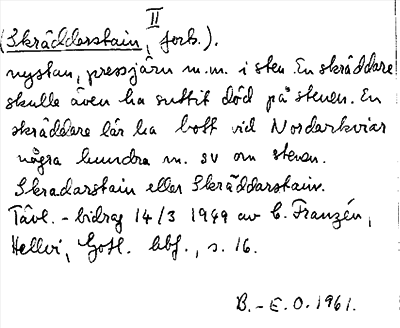 II
(Skräddarstain, forts.).
nystan, pressjärn m.m. i sten. En skräddare
skulle även ha suttit död på stenen. En
skräddare lär ha bott vid Nordarkviar
några hundra m. sv om stenen.
Skradarstain eller Skräddarstain.
Tävl.-bidrag 14/3 1949 av C. Franzén,
Hellvi, Gotl. bbf., s. 16.
B.-E.O. 1961.